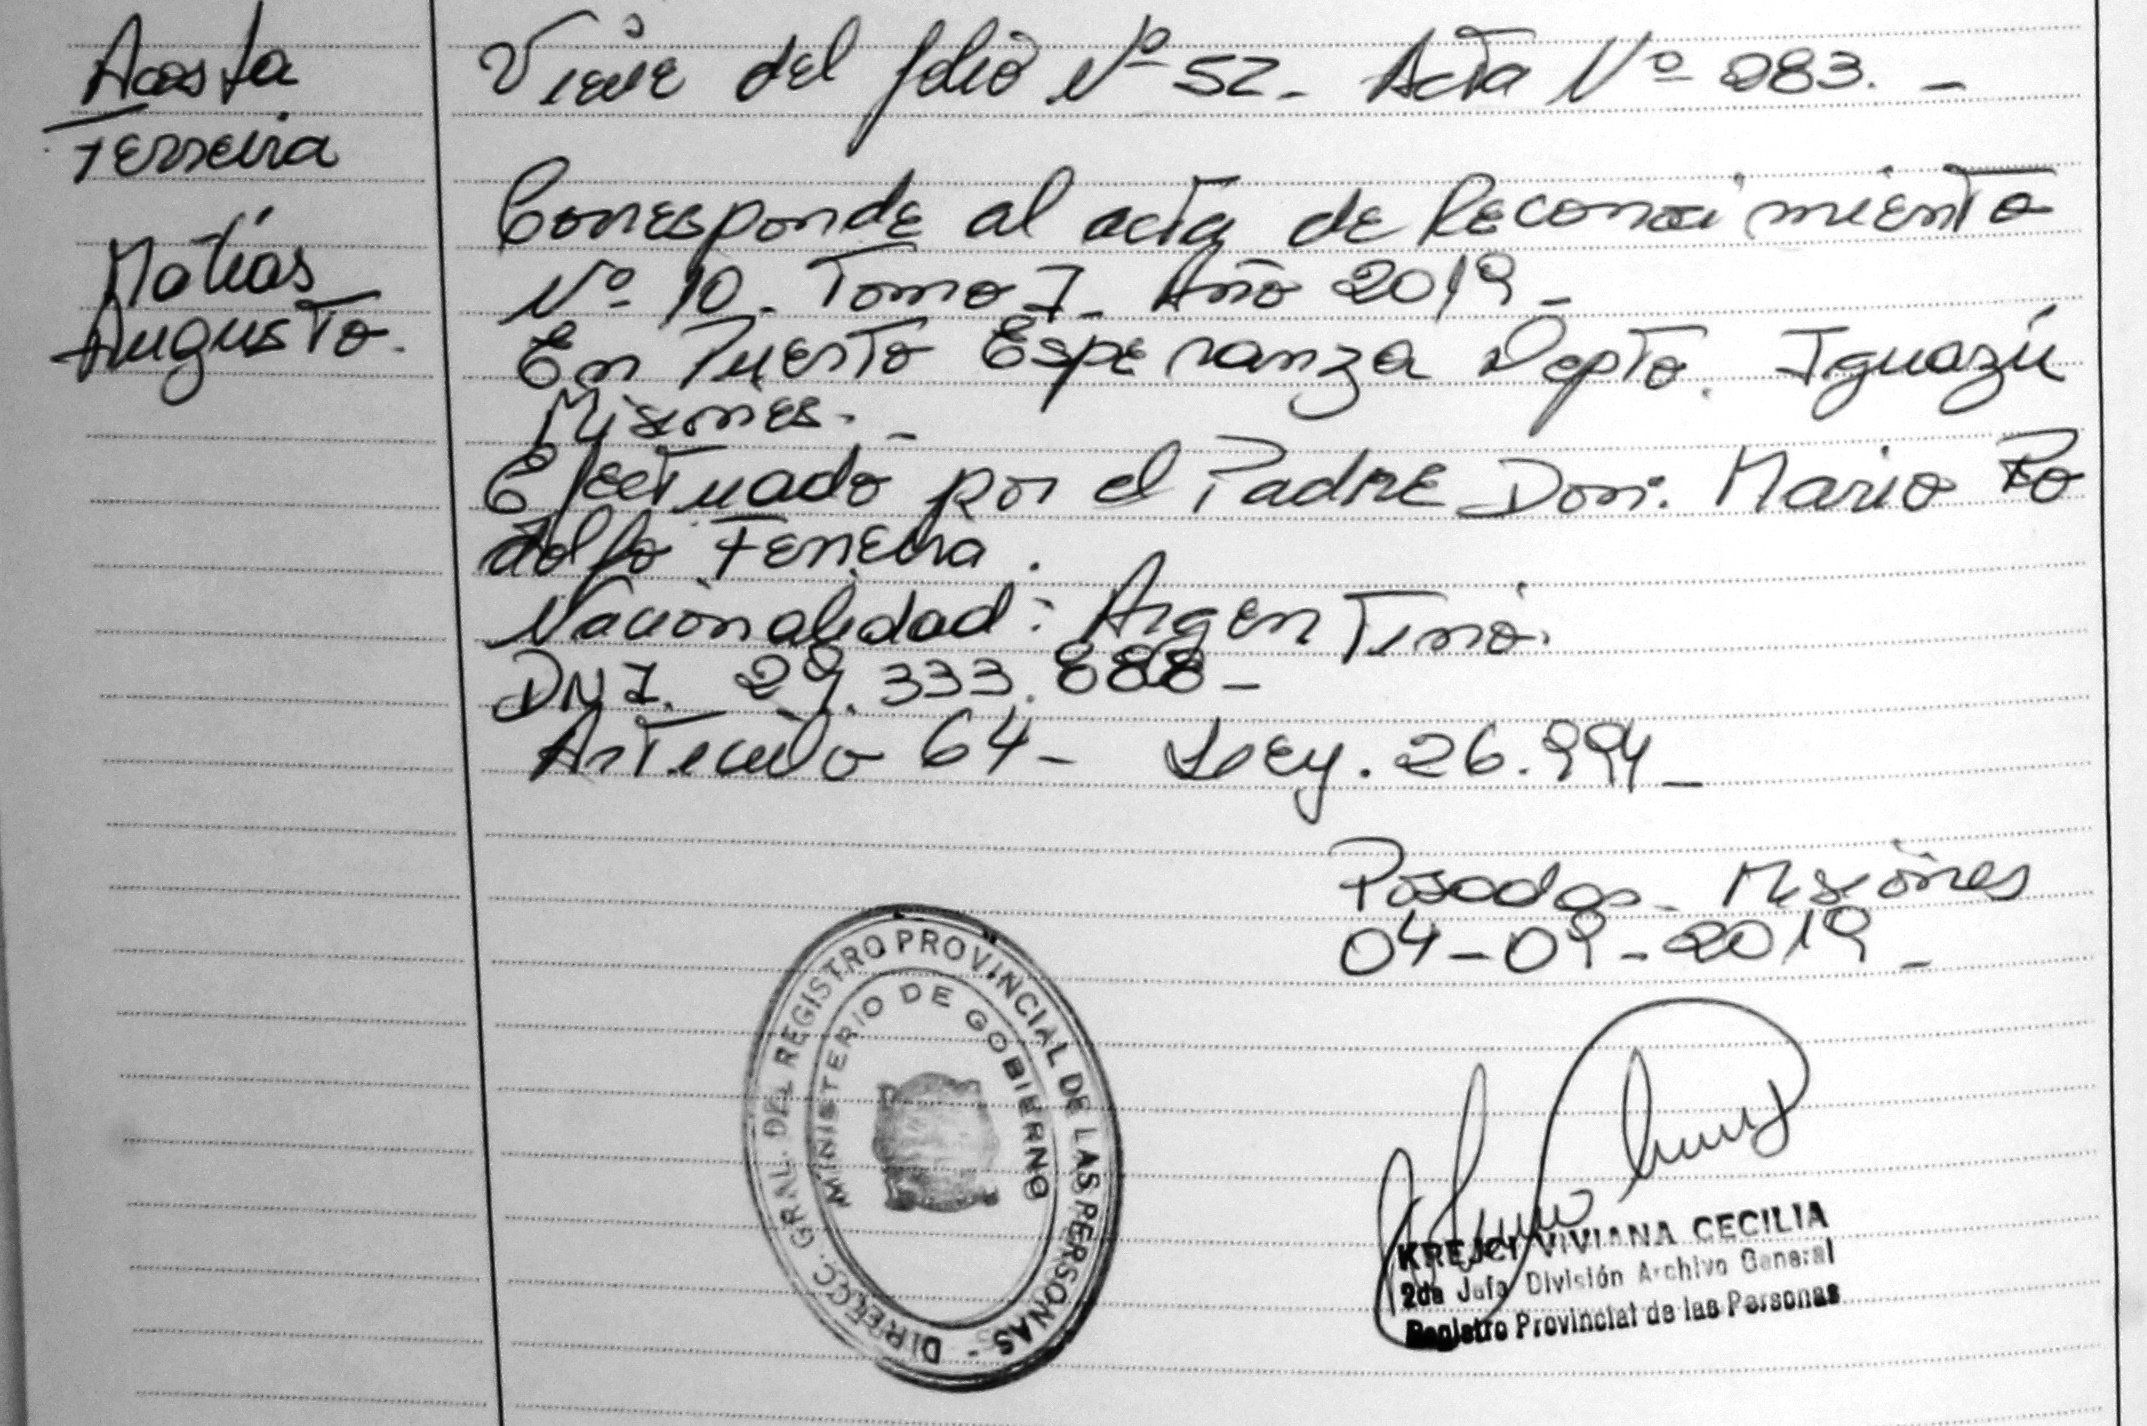 Acosta
Ferreira
Matías
Augusto.
Viene del folio Nº 52. Acta Nº 283. -
Corresponde al acta de Reconocimiento
Nº 10. Tomo I. Año 2019 -
En Puerto Esperanza Depto. Iguazú
Misiones. -
Efectuado por el Padre Don: Mario Ro
dolfo Ferreira.
Nacionalidad: Argentino.
DNI. 29.333.888 -
Artículo 64 - Ley. 26.994 -
Posadas - Misiones
04-09-2019 -
DIRECC. GRAL. DEL REGISTRO PROVINCIAL DE LAS PERSONAS -
MINISTERIO DE GOBIERNO
KREJCI VIVIANA CECILIA
2da Jefa División Archivo General
Registro Provincial de las Personas